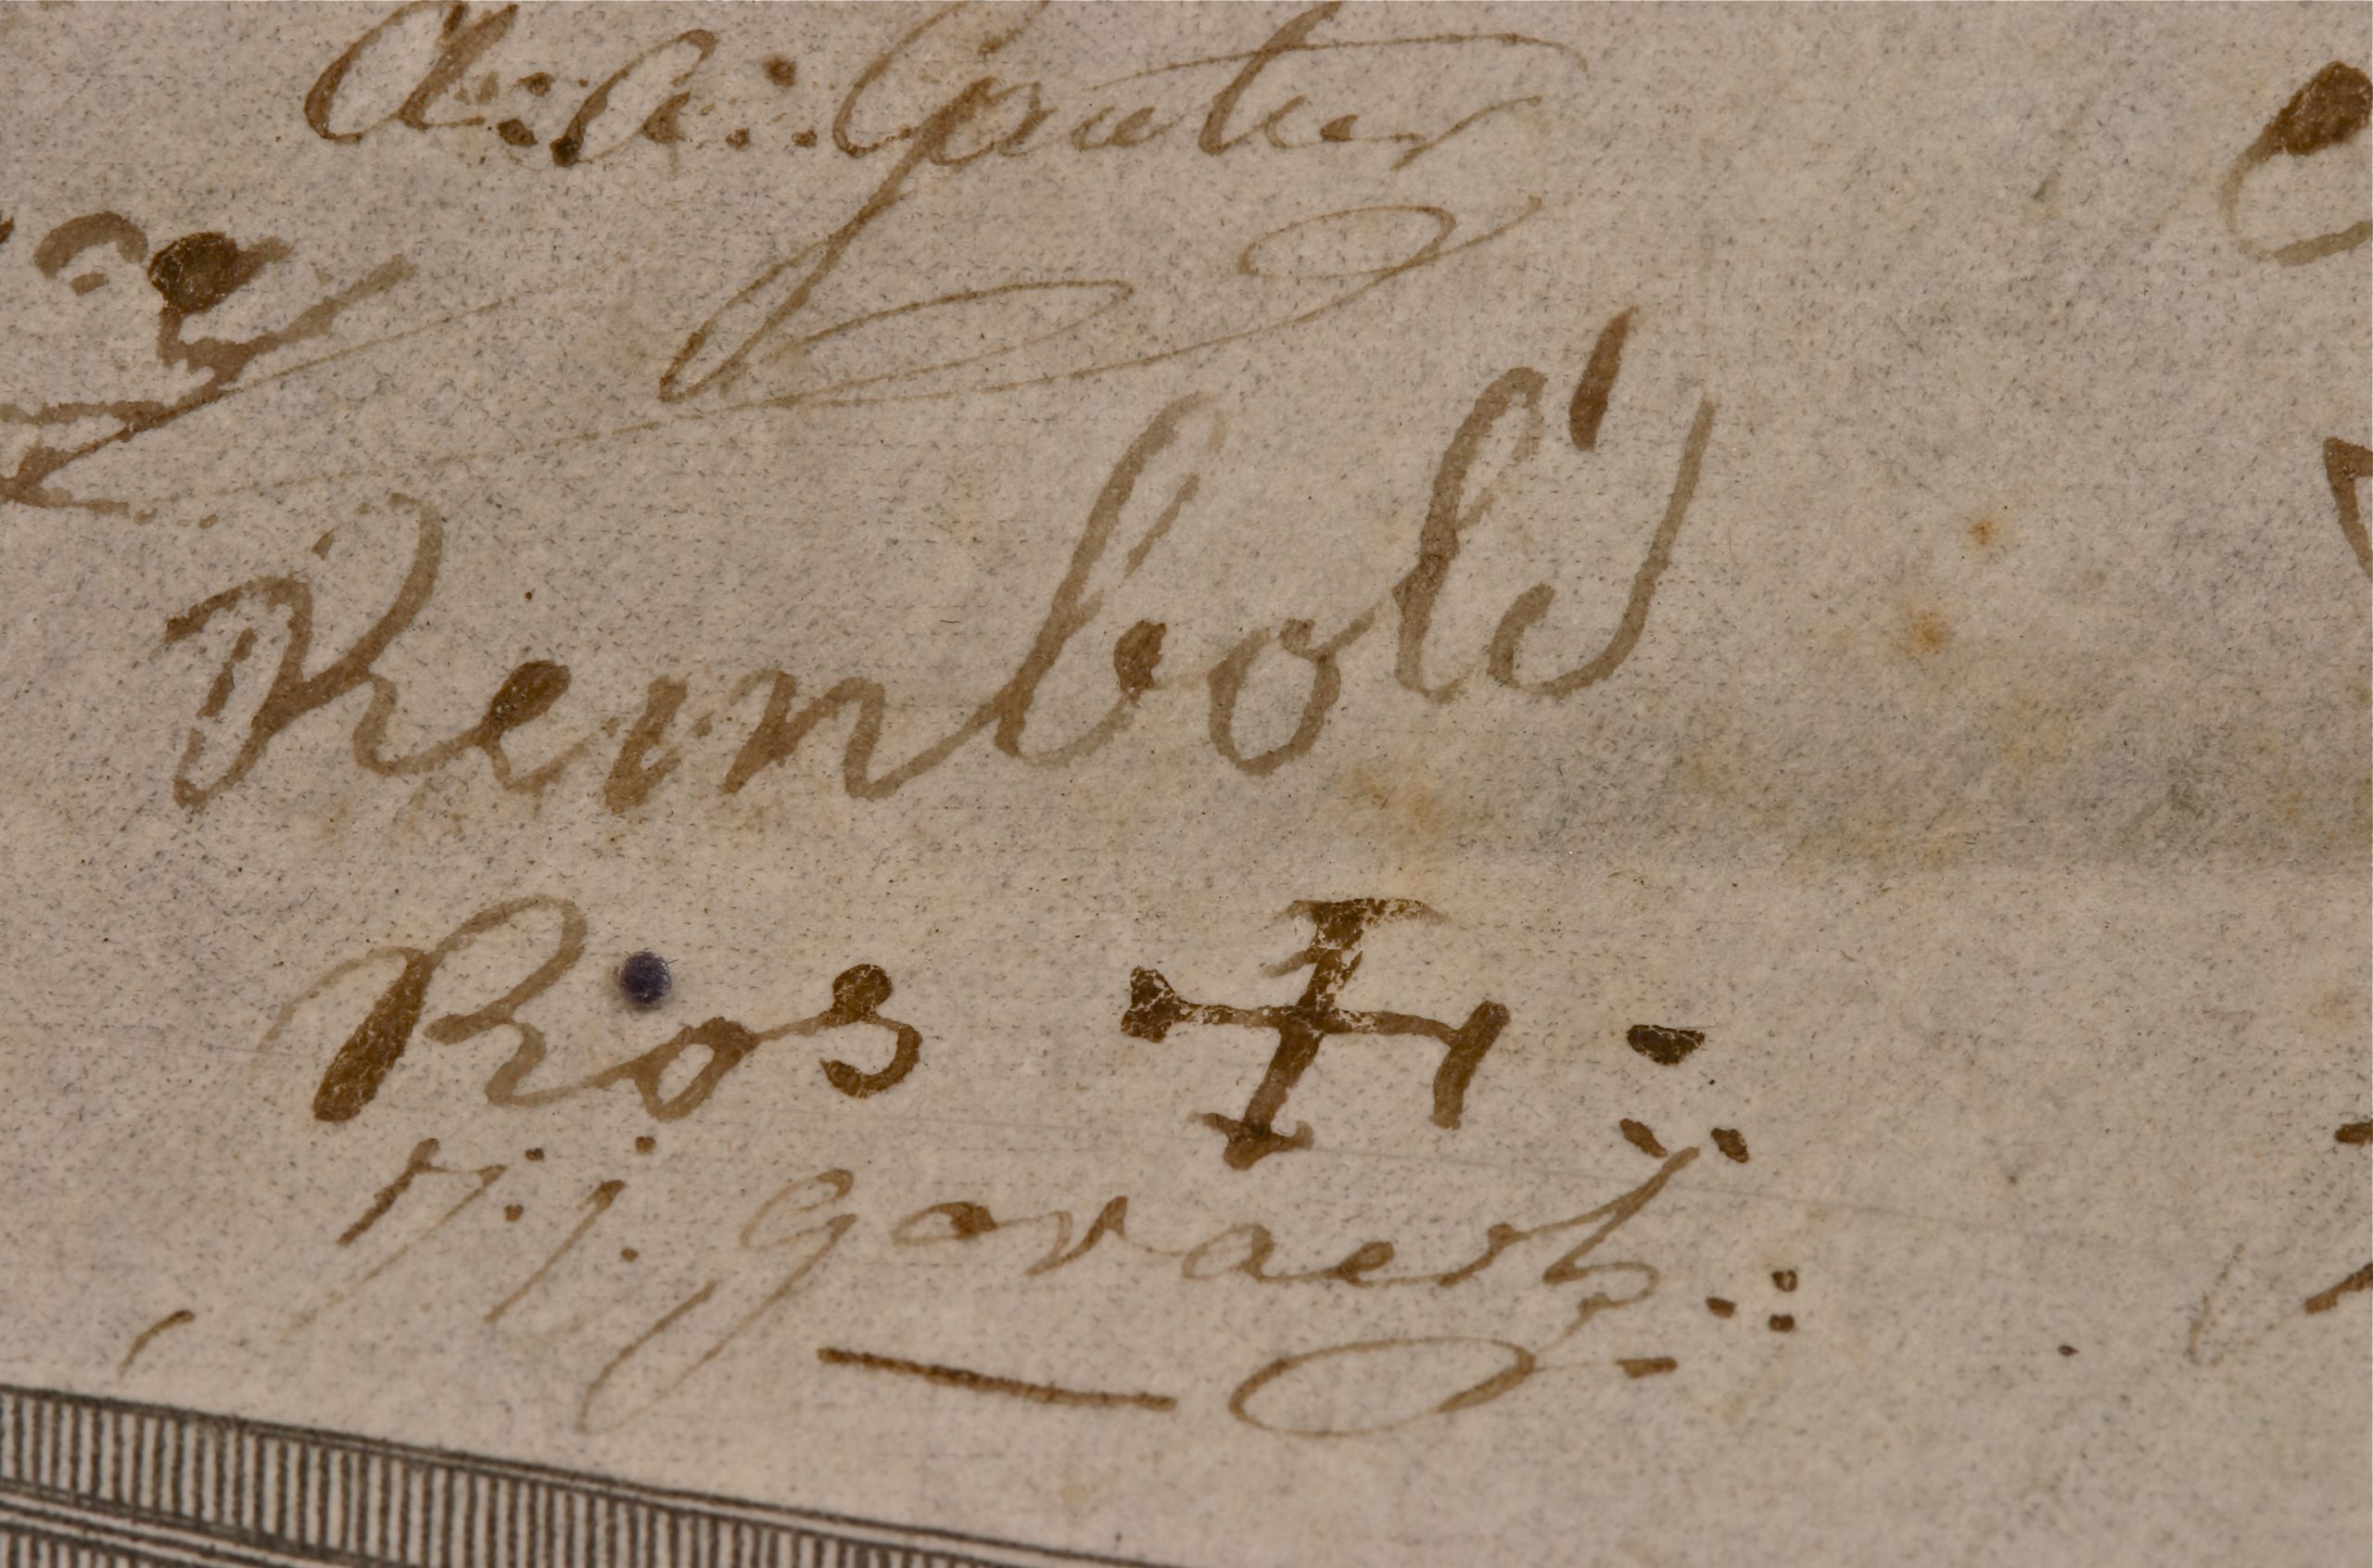 A: A: Gautier
Rembold
Ros ✠
J: J: Govaerts